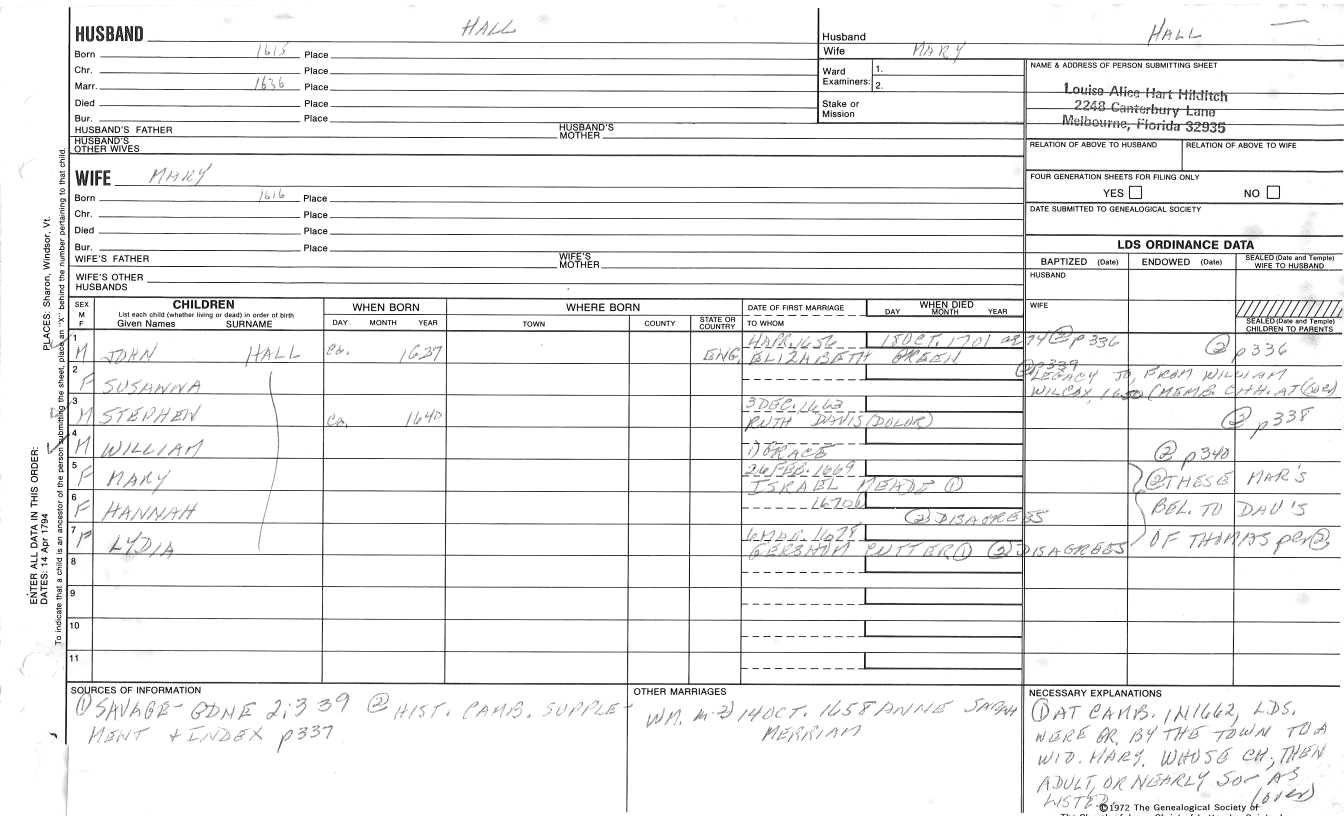 HUSBAND HALL
Born 1615 Place
Chr. Place
Marr. 1636 Place
Died Place
Bur. Place
HUSBAND'S FATHER HUSBAND'S MOTHER
HUSBAND'S OTHER WIVES
Husband HALL
Wife MARY
Ward Examiners: 1.
2.
Stake or Mission
NAME & ADDRESS OF PERSON SUBMITTING SHEET
Louise Alice Hart Hilditch
2248 Canterbury Lane
Melbourne, Florida 32935
RELATION OF ABOVE TO HUSBAND RELATION OF ABOVE TO WIFE
FOUR GENERATION SHEETS FOR FILING ONLY
YES NO
DATE SUBMITTED TO GENEALOGICAL SOCIETY
WIFE MARY
Born 1616 Place
Chr. Place
Died Place
Bur. Place
WIFE'S FATHER WIFE'S MOTHER
WIFE'S OTHER HUSBANDS
LDS ORDINANCE DATA
BAPTIZED (Date) ENDOWED (Date) SEALED (Date and Temple) WIFE TO HUSBAND
HUSBAND
WIFE
SEALED (Date and Temple) CHILDREN TO PARENTS
ENTER ALL DATA IN THIS ORDER:
DATES: 14 Apr 1794 PLACES: Sharon, Windsor, Vt.
To indicate that a child is an ancestor of the person submitting the sheet, place an "X" behind the number pertaining to that child.
SEX M F CHILDREN WHEN BORN WHERE BORN DATE OF FIRST MARRIAGE WHEN DIED
List each child (whether living or dead) in order of birth
Given Names SURNAME DAY MONTH YEAR TOWN COUNTY STATE OR COUNTRY TO WHOM DAY MONTH YEAR
1 M JOHN HALL Ca. 1637 ENG. 4 APR. 1656 18 OCT. 1701 ae 74 ② p336 ② p336
ELIZABETH GREEN
2 F SUSANNA ② p339
LEGACY TO, FROM WILLIAM
WILCOX, 1650 (MEMB. CHH. AT
3 M STEPHEN Ca. 1640 3 DEC. 1663 ② p338
RUTH DAVIS (DOLOR)
4 M WILLIAM ② p340
5 F MARY 26 FEB. 1669 ② THESE MAR'S
ISRAEL MEADE ①
6 F HANNAH 1670 BEL. TO DAU'S
② DISAGREES
7 F LYDIA 1678 OF THOMAS per ②
GERSHOM CUTTER ① ② DISAGREES
8
9
10
11
SOURCES OF INFORMATION
① SAVAGE - GDNE 2:339 ② HIST. CAMB. SUPPLE-
MENT & INDEX p337
OTHER MARRIAGES
WM. m-2) 14 OCT. 1658 ANNE SARAH
MERRIAM
NECESSARY EXPLANATIONS
① AT CAMB. IN 1662, LDS.
WERE GR. BY THE TOWN TO A
WID. MARY, WHOSE CH., THEN
ADULT, OR NEARLY SO AS
LISTED. (over)
©1972 The Genealogical Society of